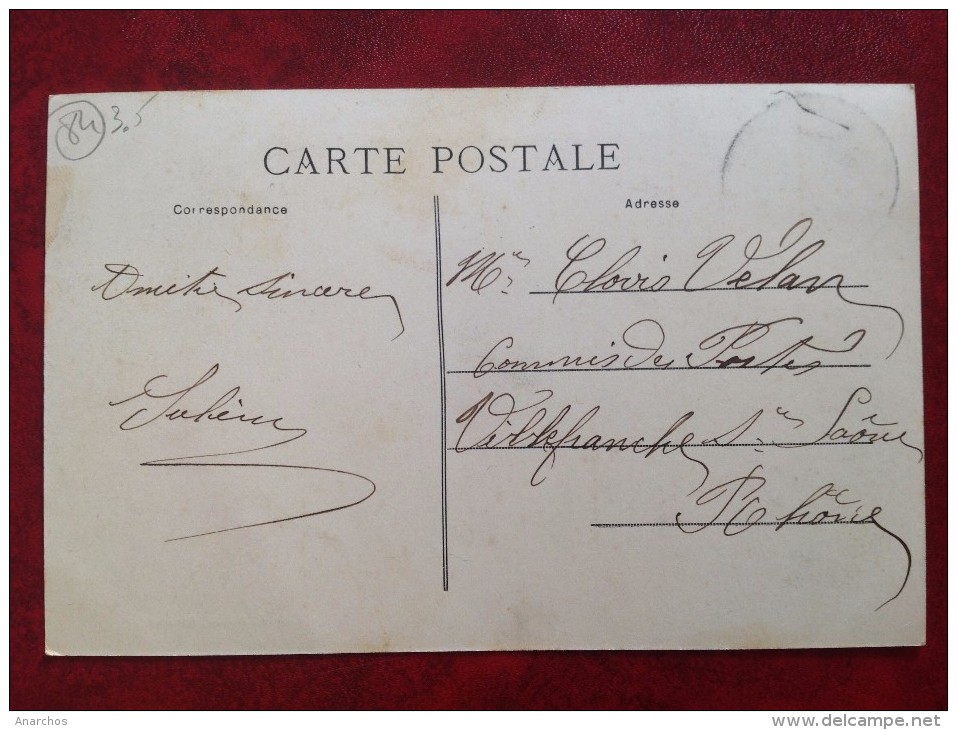 84 3.5
CARTE POSTALE
Correspondance
Adresse
Amitié sincère
Mr Clovis Velay
Commis des Postes
Villefranche s/ Saône
Rhône
Anarchos
www.delcampe.net